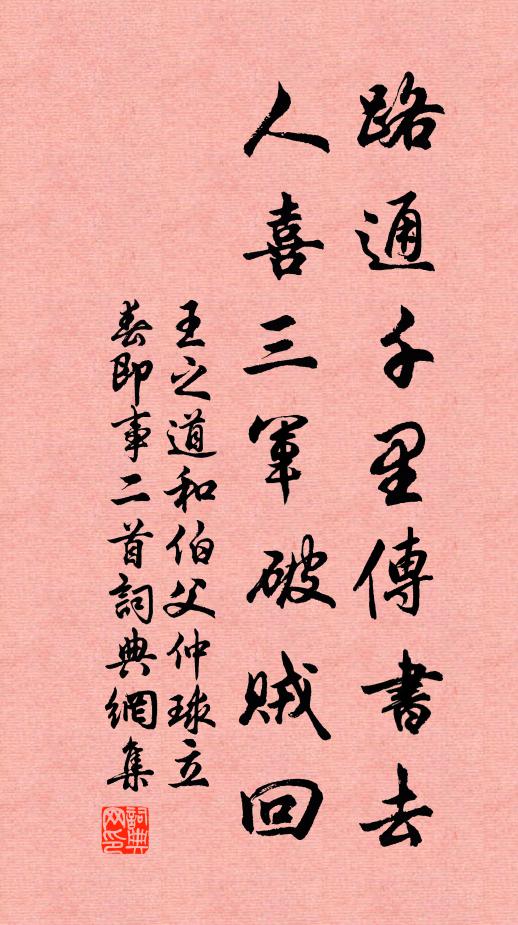 路通千里傳書去
人喜三軍破賊回
王之道和伯父仲球立
春即事二首詞典網集
詞典
网印